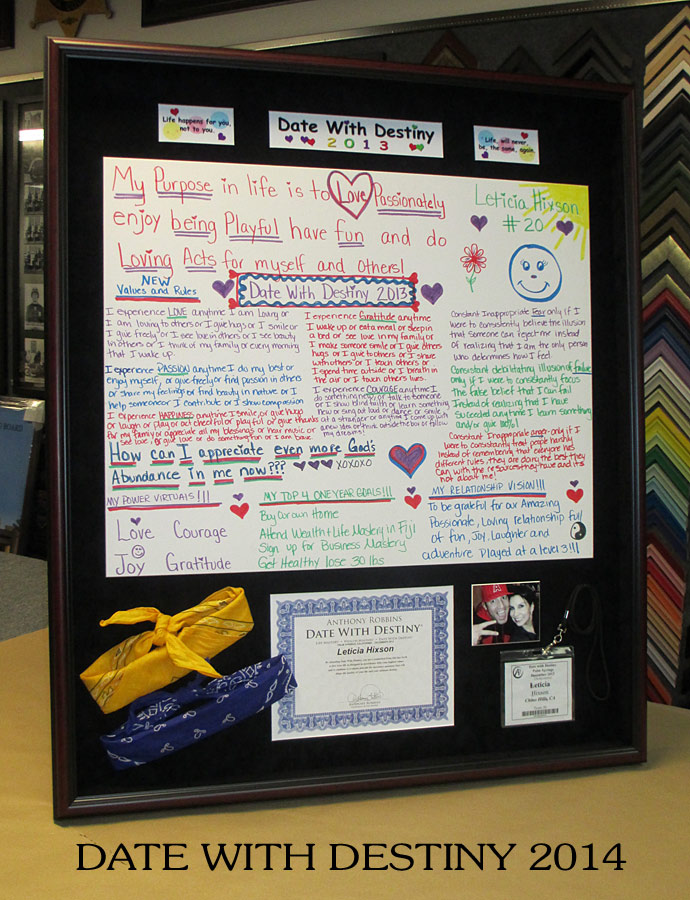 Life happens for you,
not to you.
Date With Destiny
2013
Life will never
be the same again.
My Purpose in life is to Love Passionately
enjoy being Playful have fun and do
Loving Acts for myself and others!
Leticia Hixson
#20
NEW
Values and Rules
Date With Destiny 2013
I experience LOVE anytime I am Loving or
I am loving to others or I give hugs or I smile or
I give freely or I see love in others or I see beauty
in others or I think of my family or every morning
that I wake up.
I experience PASSION anytime I do my best or
enjoy myself, or give freely or find passion in others
or share my feelings or find beauty in nature or I
help someone or I contribute or I show compassion
I experience HAPPINESS anytime I smile, or give hugs
or laugh or play or act cheerful or playful or give thanks
for my family or appreciate all my blessings or hear music or
see love, or give love or do something fun or I am brave.
I experience Gratitude anytime
I wake up or eat a meal or sleep in
a bed or see love in my family or
I make someone smile or I give others
hugs or I give to others or I share
with others or I teach others or
I spend time outside or I breath in
the air or I touch others lives.
I experience COURAGE anytime I
do something new, or talk to someone
or I show blind faith or learn something
new or sing out loud or dance or smile
at a stranger or anytime I come up with
a new idea or think outside the box or follow
my dreams!
Constant Inappropriate Fear only if I
were to consistently believe the illusion
that someone can reject me instead
of realizing that I am the only person
who determines how I feel.
Constant debilitating illusion of failure
only if I were to constantly focus
the false belief that I can fail
Instead of realizing that I have
Succeeded anytime I learn something
and/or give help!
Constant Inappropriate anger only if I
were to constantly treat people harshly
Instead of remembering that everyone has
different rules, they are doing the best they
can with the resources they have and it's
not about me!
How can I appreciate even more God's
Abundance in me now??? XOXOXO
MY POWER VIRTUALS!!!
Love Courage
Joy Gratitude
MY TOP 4 ONE YEAR GOALS!!!
Buy Our own Home
Attend Wealth + Life Mastery in Fiji
Sign up for Business Mastery
Get Healthy lose 30 lbs
MY RELATIONSHIP VISION!!!
To be grateful for our Amazing
Passionate, Loving relationship full
of fun, Joy, Laughter and
adventure Played at a level 3!!!
ANTHONY ROBBINS
DATE WITH DESTINY
Leticia Hixson
Leticia
Hixson
Chino Hills, CA
DATE WITH DESTINY 2014